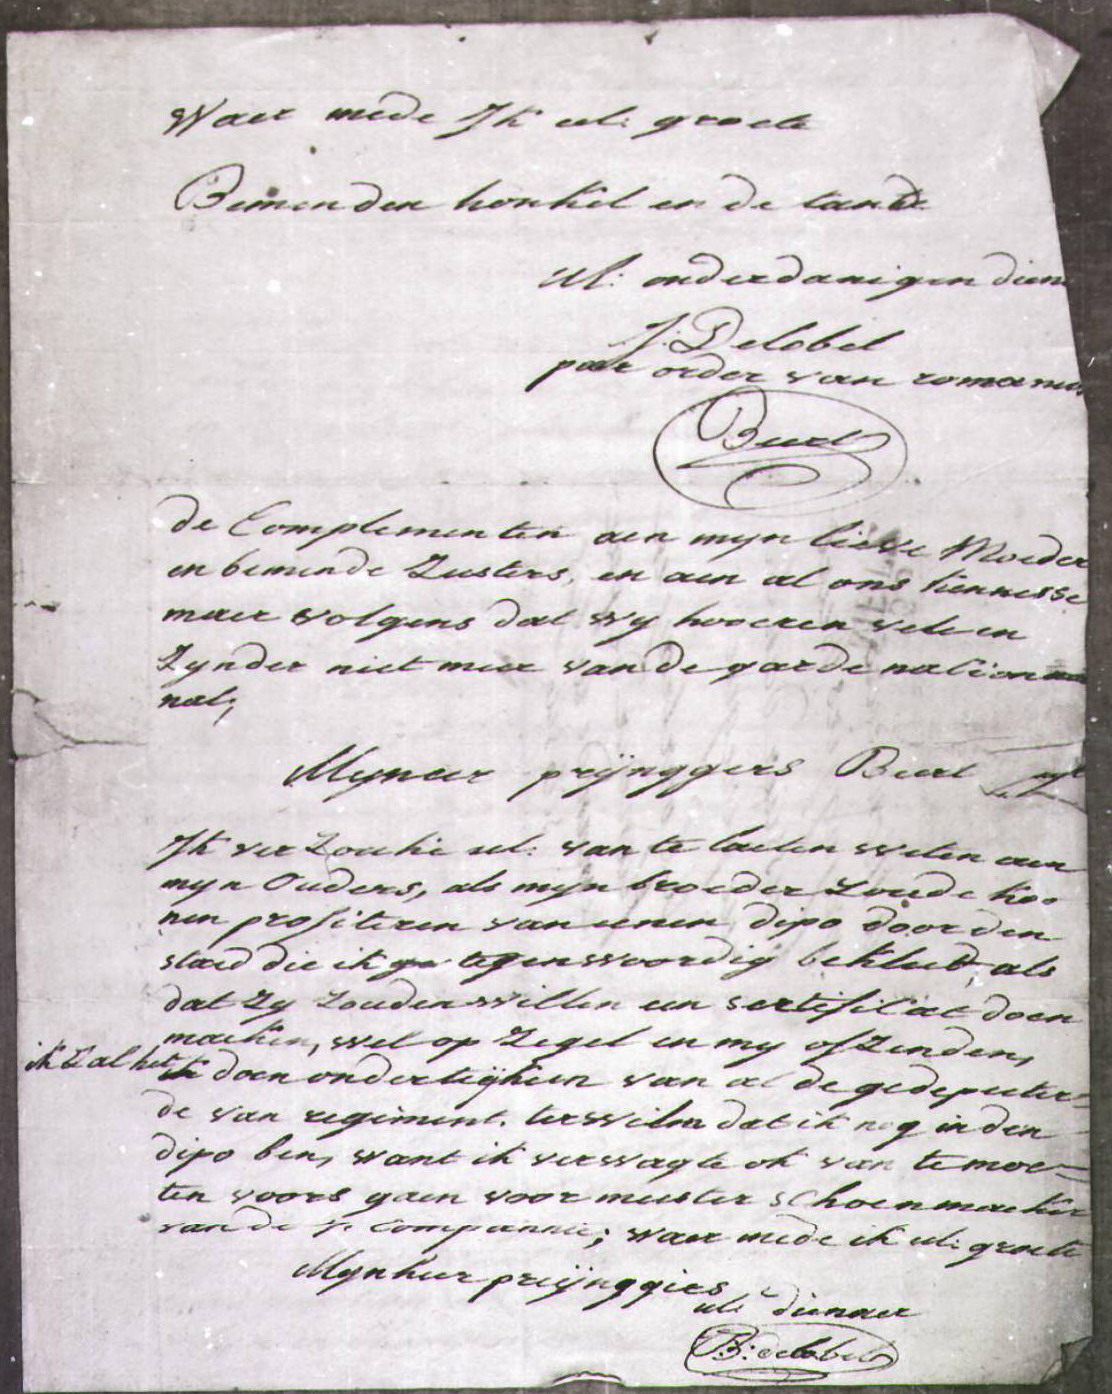 Waer mede Ik ul: groete
Beminden honkel en de tande
ul: onderdanigen dien
J: Delobel
par order van romanus
Buert
de Complementen aen mijn lieve Moeder
en beminde Zusters, en aen al ons kennesse
maer volgens dat wy hooeren vele en
Zynder niet meer van de garde nation
nal;
Myneer prijnggers Buert
Ik verZoeke ul: van te laeten weten aen
myn Ouders, als myn broeder Zoude koo
nen profiteren van eenen dipo door den
staed die ik tegenwoordig bekleed, als
dat Zy Zouden willen een sertifikaet doen
maeken, wel op Zegel en my ofZenden,
ik Zal het doen onderteijkeen van al de gedeputer=
de van regiment. terwilm dat ik nog in den
dipo ben, want ik verwagte ok van te moe=
ten voors gaen voor meester schoenmaeker
van de Compannie; waer mede ik ul: groete
Mynheer preijnggies
ul: dienaer
B: delobel